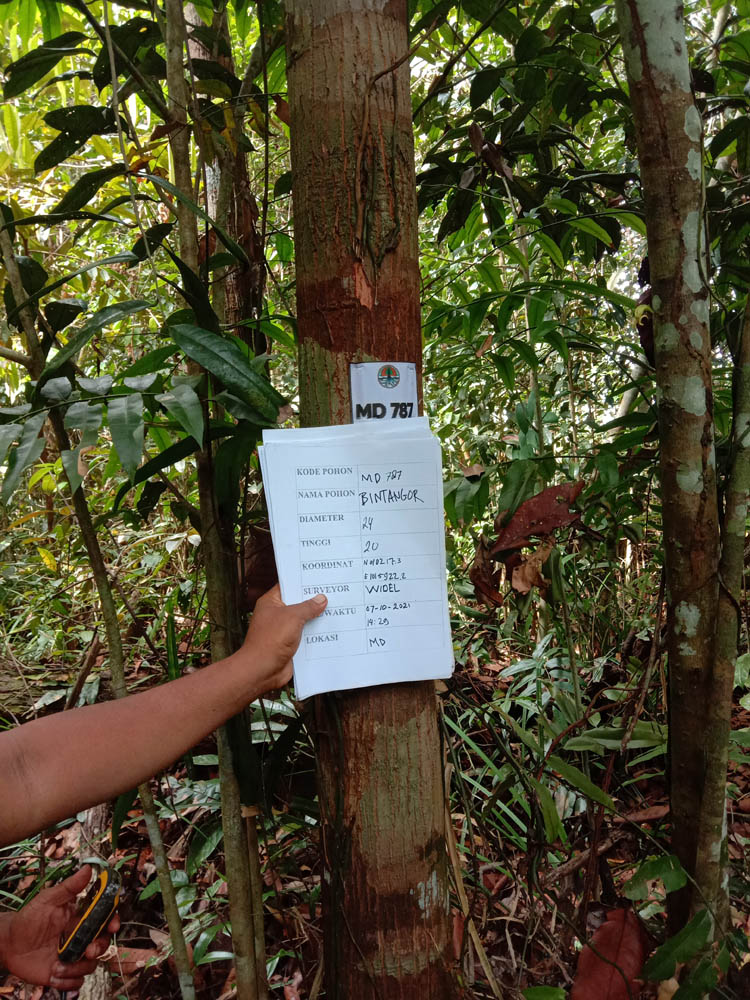 MD 787
KODE POHON MD 787
NAMA POHON BINTANGOR
DIAMETER 24
TINGGI 20
KOORDINAT
SURVEYOR WIDEL
WAKTU 07-10-2021
14:29
LOKASI MD